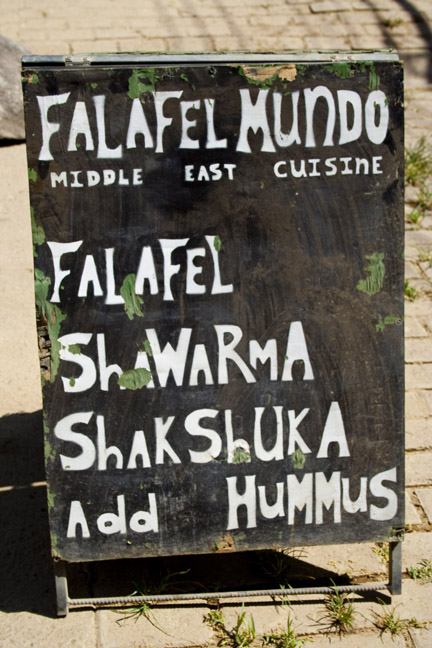 FALAFEL MUNDO
MIDDLE EAST CUISINE
FALAFEL
ShaWARMA
ShAKShUKA
Add HUMMUS